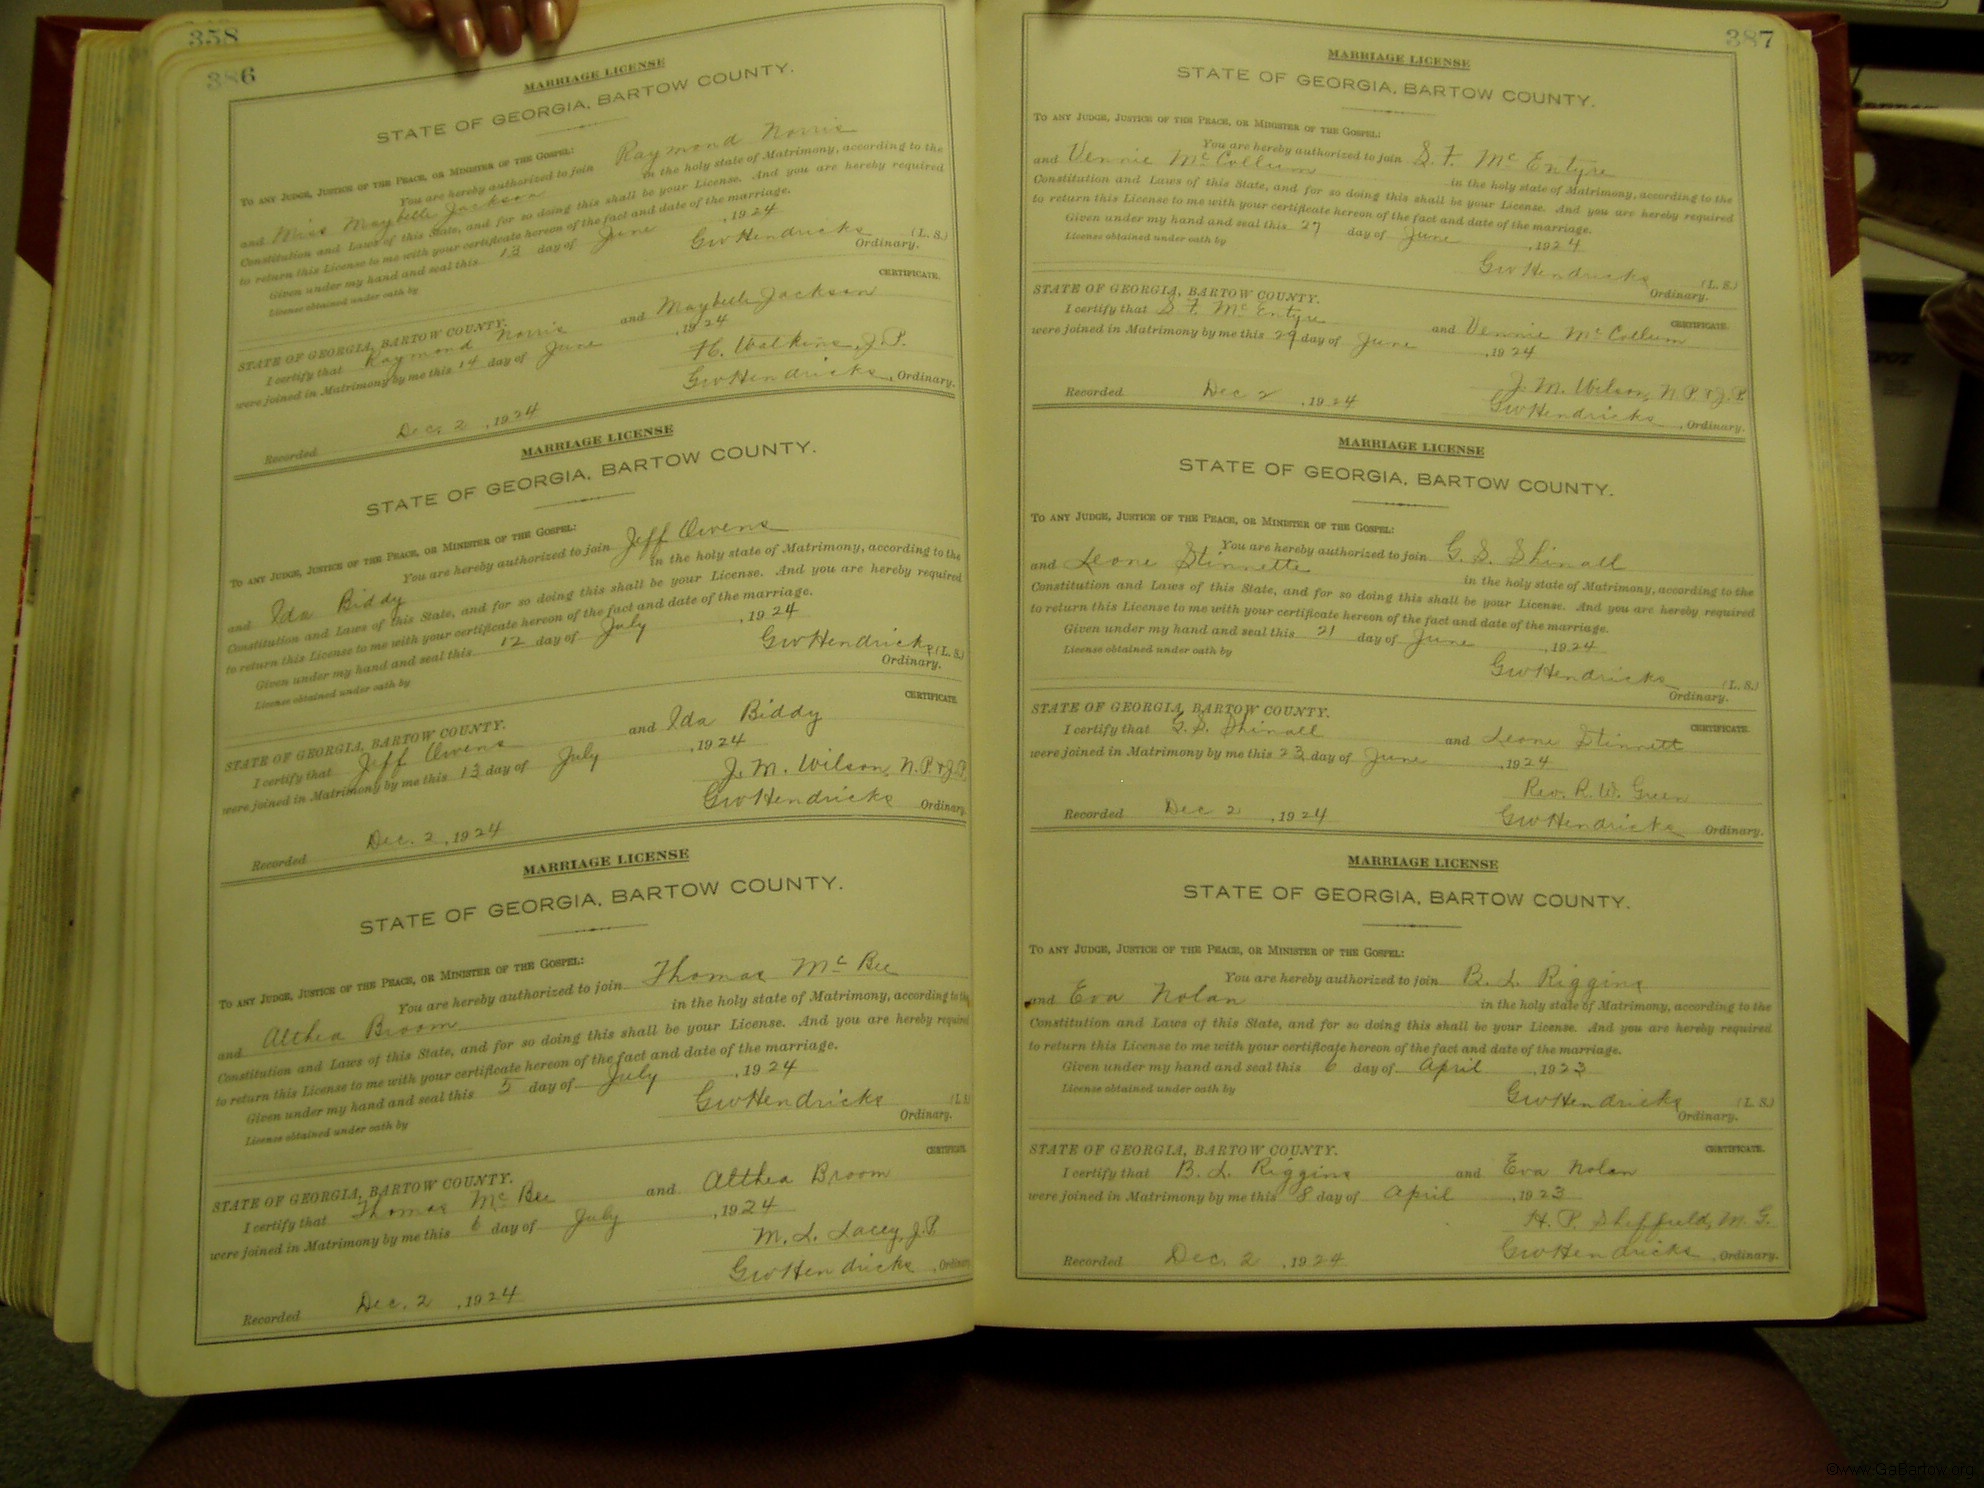 358
386
MARRIAGE LICENSE
STATE OF GEORGIA, BARTOW COUNTY.
TO ANY JUDGE, JUSTICE OF THE PEACE, OR MINISTER OF THE GOSPEL:
You are hereby authorized to join Raymond Norris
and Miss Maybelle Jackson in the holy state of Matrimony, according to the
Constitution and Laws of this State, and for so doing this shall be your License. And you are hereby required
to return this License to me with your certificate hereon of the fact and date of the marriage.
Given under my hand and seal this 13 day of June, 1924
License obtained under oath by
GwHendricks (L. S.)
Ordinary.
CERTIFICATE.
STATE OF GEORGIA, BARTOW COUNTY.
I certify that Raymond Norris and Maybelle Jackson
were joined in Matrimony by me this 14 day of June, 1924
H. Watkins, J.P.
GwHendricks, Ordinary.
Recorded Dec. 2, 1924
MARRIAGE LICENSE
STATE OF GEORGIA, BARTOW COUNTY.
TO ANY JUDGE, JUSTICE OF THE PEACE, OR MINISTER OF THE GOSPEL:
You are hereby authorized to join Jeff Owens
and Ida Biddy in the holy state of Matrimony, according to the
Constitution and Laws of this State, and for so doing this shall be your License. And you are hereby required
to return this License to me with your certificate hereon of the fact and date of the marriage.
Given under my hand and seal this 12 day of July, 1924
License obtained under oath by
GwHendricks (L. S.)
Ordinary.
CERTIFICATE.
STATE OF GEORGIA, BARTOW COUNTY.
I certify that Jeff Owens and Ida Biddy
were joined in Matrimony by me this 13 day of July, 1924
J. M. Wilson, N.P. & J.P.
GwHendricks Ordinary.
Recorded Dec. 2, 1924
MARRIAGE LICENSE
STATE OF GEORGIA, BARTOW COUNTY.
TO ANY JUDGE, JUSTICE OF THE PEACE, OR MINISTER OF THE GOSPEL:
You are hereby authorized to join Thomas McBee
and Althea Broom in the holy state of Matrimony, according to the
Constitution and Laws of this State, and for so doing this shall be your License. And you are hereby required
to return this License to me with your certificate hereon of the fact and date of the marriage.
Given under my hand and seal this 5 day of July, 1924
License obtained under oath by
GwHendricks (L. S.)
Ordinary.
CERTIFICATE.
STATE OF GEORGIA, BARTOW COUNTY.
I certify that Thomas McBee and Althea Broom
were joined in Matrimony by me this 6 day of July, 1924
M. L. Lacey, J.P.
GwHendricks, Ordinary
Recorded Dec. 2, 1924
387
MARRIAGE LICENSE
STATE OF GEORGIA, BARTOW COUNTY.
TO ANY JUDGE, JUSTICE OF THE PEACE, OR MINISTER OF THE GOSPEL:
You are hereby authorized to join S. F. McEntyre
and Vennie McCollum in the holy state of Matrimony, according to the
Constitution and Laws of this State, and for so doing this shall be your License. And you are hereby required
to return this License to me with your certificate hereon of the fact and date of the marriage.
Given under my hand and seal this 27 day of June, 1924
License obtained under oath by
GwHendricks (L. S.)
Ordinary.
STATE OF GEORGIA, BARTOW COUNTY.
CERTIFICATE.
I certify that S F. McEntyre and Vennie McCollum
were joined in Matrimony by me this 29 day of June, 1924
J. M. Wilson, N.P. & J.P.
Recorded Dec 2, 1924
GwHendricks, Ordinary.
MARRIAGE LICENSE
STATE OF GEORGIA, BARTOW COUNTY.
TO ANY JUDGE, JUSTICE OF THE PEACE, OR MINISTER OF THE GOSPEL:
You are hereby authorized to join G. S. Shinall
and Leone Stinnette in the holy state of Matrimony, according to the
Constitution and Laws of this State, and for so doing this shall be your License. And you are hereby required
to return this License to me with your certificate hereon of the fact and date of the marriage.
Given under my hand and seal this 21 day of June, 1924
License obtained under oath by
GwHendricks (L. S.)
Ordinary.
STATE OF GEORGIA, BARTOW COUNTY.
CERTIFICATE.
I certify that G. S. Shinall and Leone Stinnett
were joined in Matrimony by me this 23 day of June, 1924
Rev. R. W. Green
Recorded Dec 2, 1924
GwHendricks Ordinary.
MARRIAGE LICENSE
STATE OF GEORGIA, BARTOW COUNTY.
TO ANY JUDGE, JUSTICE OF THE PEACE, OR MINISTER OF THE GOSPEL:
You are hereby authorized to join B. L. Riggins
and Eva Nolan in the holy state of Matrimony, according to the
Constitution and Laws of this State, and for so doing this shall be your License. And you are hereby required
to return this License to me with your certificate hereon of the fact and date of the marriage.
Given under my hand and seal this 6 day of April, 1923
License obtained under oath by
GwHendricks (L. S.)
Ordinary.
STATE OF GEORGIA, BARTOW COUNTY.
CERTIFICATE.
I certify that B. L. Riggins and Eva Nolan
were joined in Matrimony by me this 8 day of April, 1923
H. P. Sheffield, M. G.
Recorded Dec. 2, 1924
GwHendricks, Ordinary.
©www.GaBartow.org